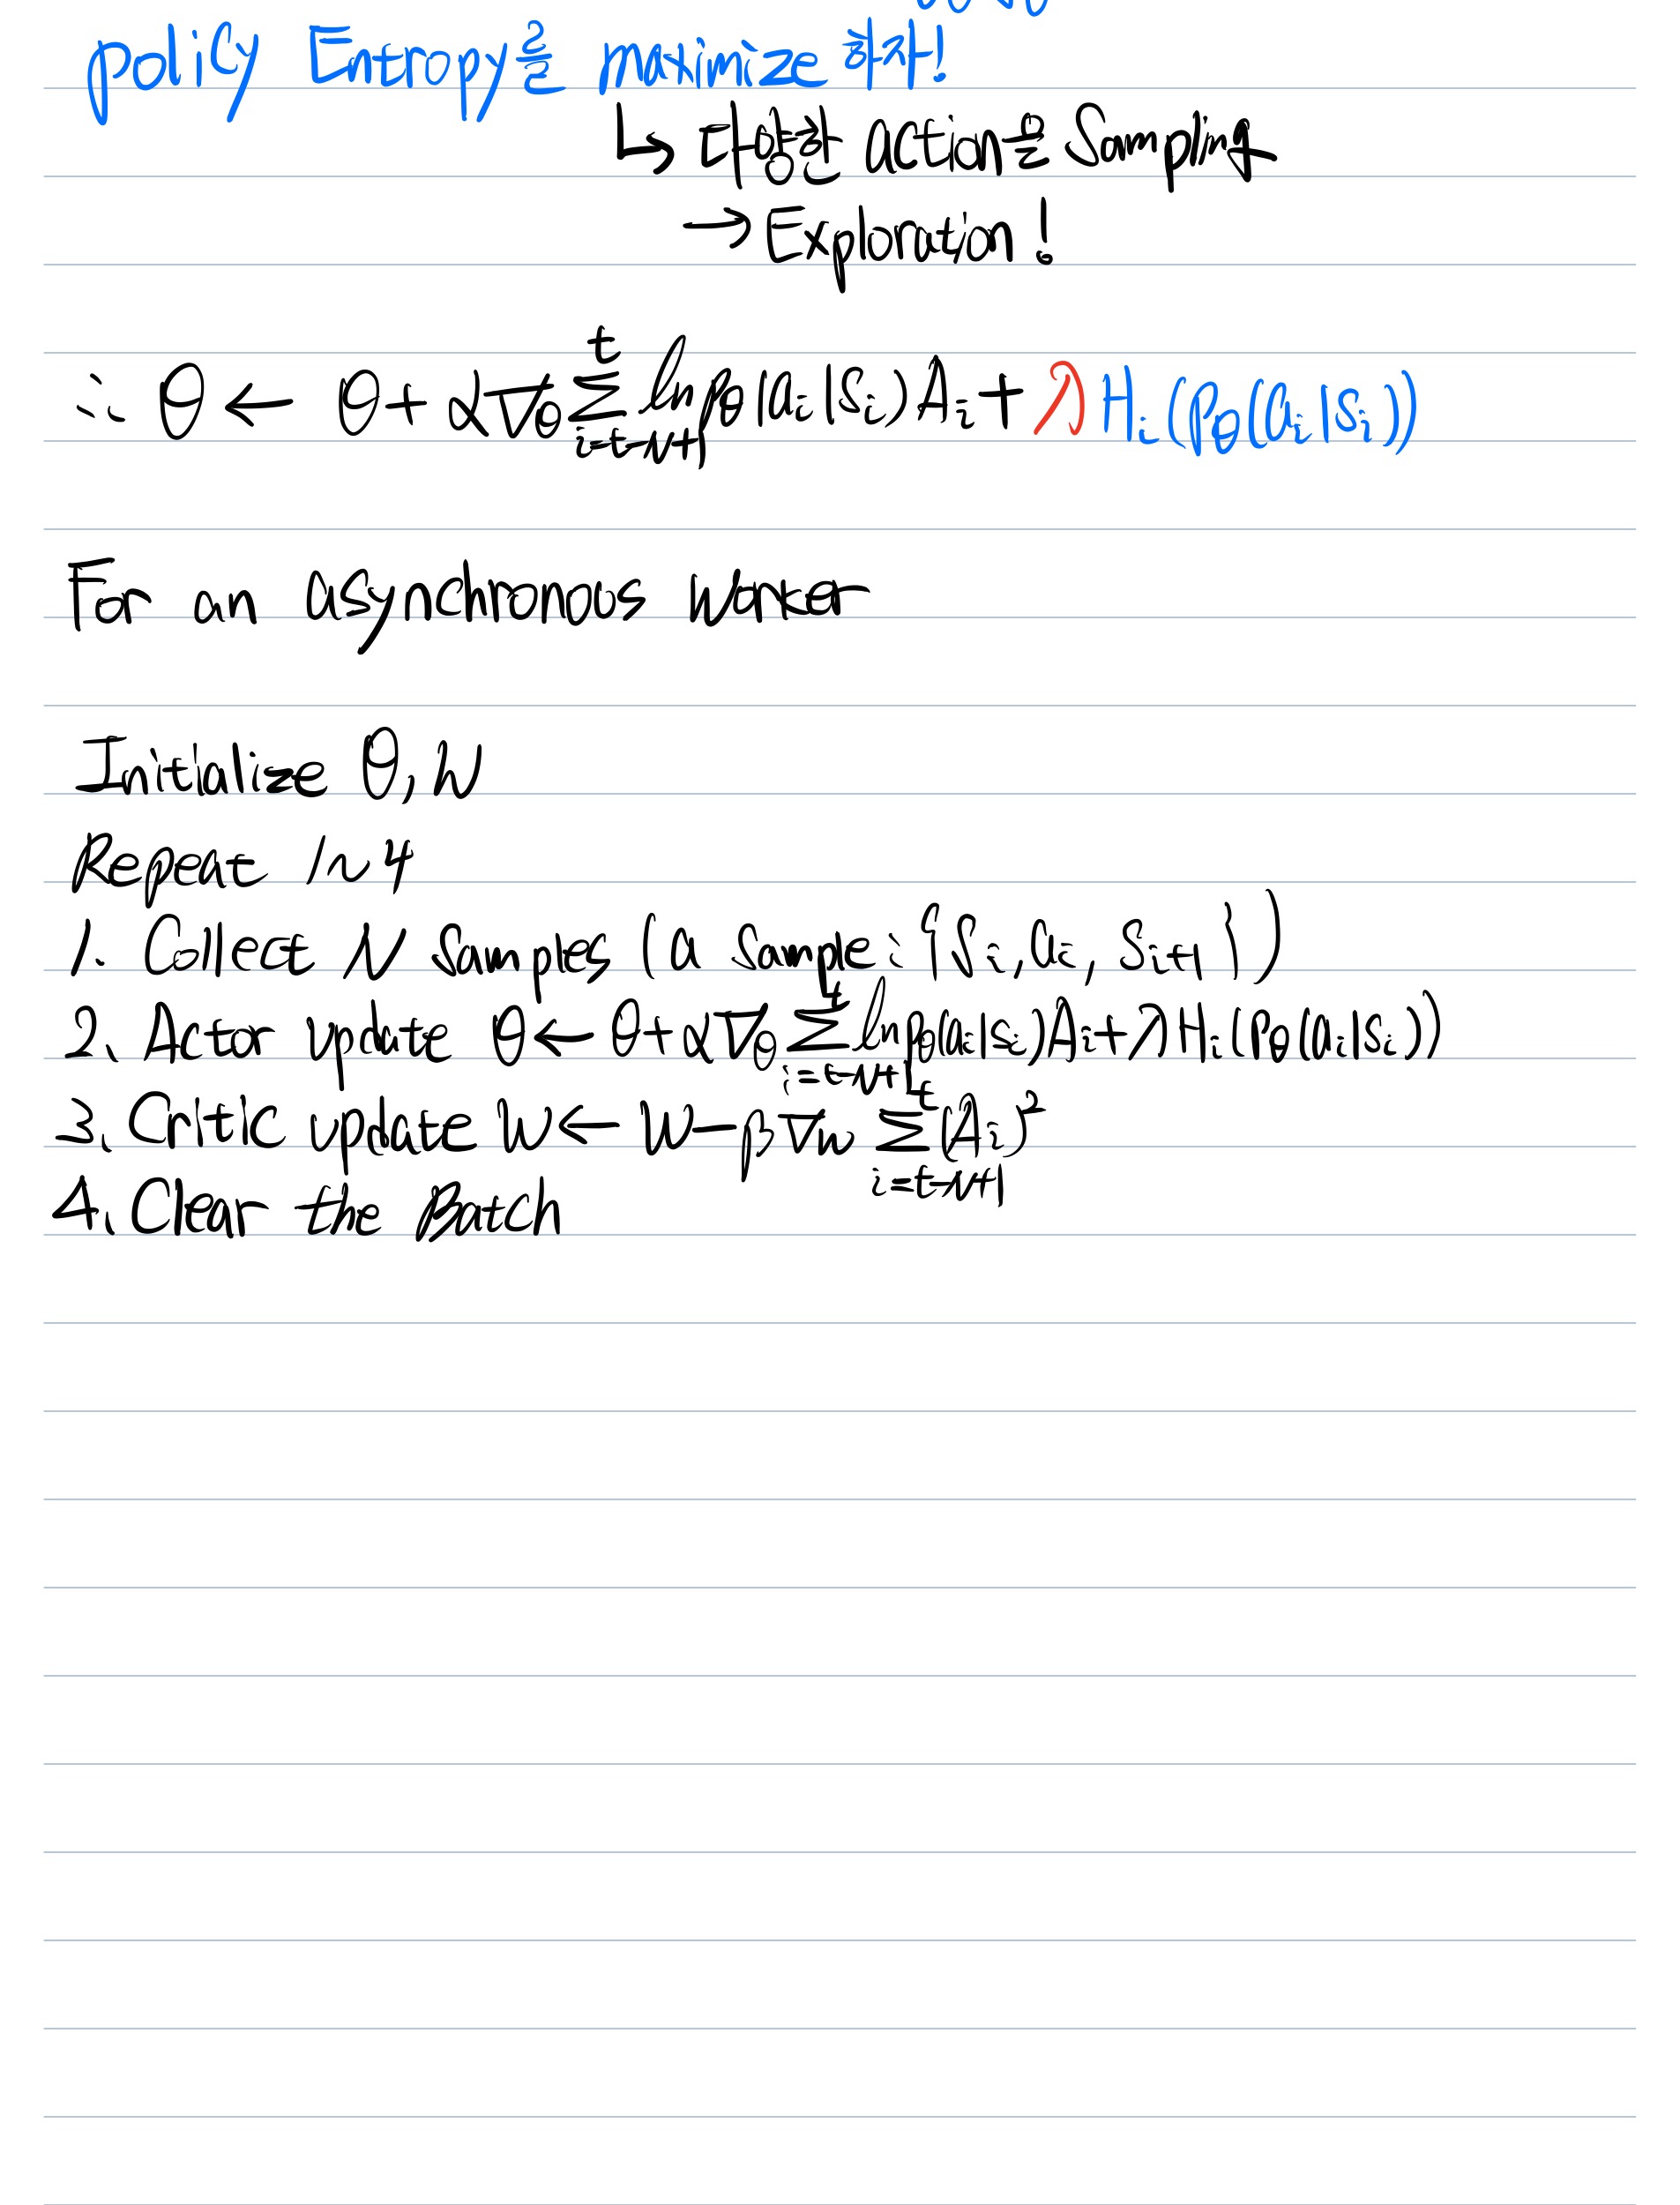 poliy Entropy를 maximize 하자!
↳ 다양한 action을 Sampling
→ Exploration!
∴ θ ← θ + α∇θ Σ_{i=t-N+1}^{t} ln pθ(ai|Si)Ai + λHi(pθ(ai|Si))
For an asynchronos worker
Initialize θ, w
Repeat 1~4
1. Collect N samples (a sample: {Si, ai, Si+1})
2. Actor update θ ← θ + α∇θ Σ_{i=t-N+1}^{t} ln pθ(ai|si)Ai + λHi(pθ(ai|si))
3. Critic update w ← w - β∇w Σ_{i=t-N+1}^{t} (Ai)²
4. Clear the Batch